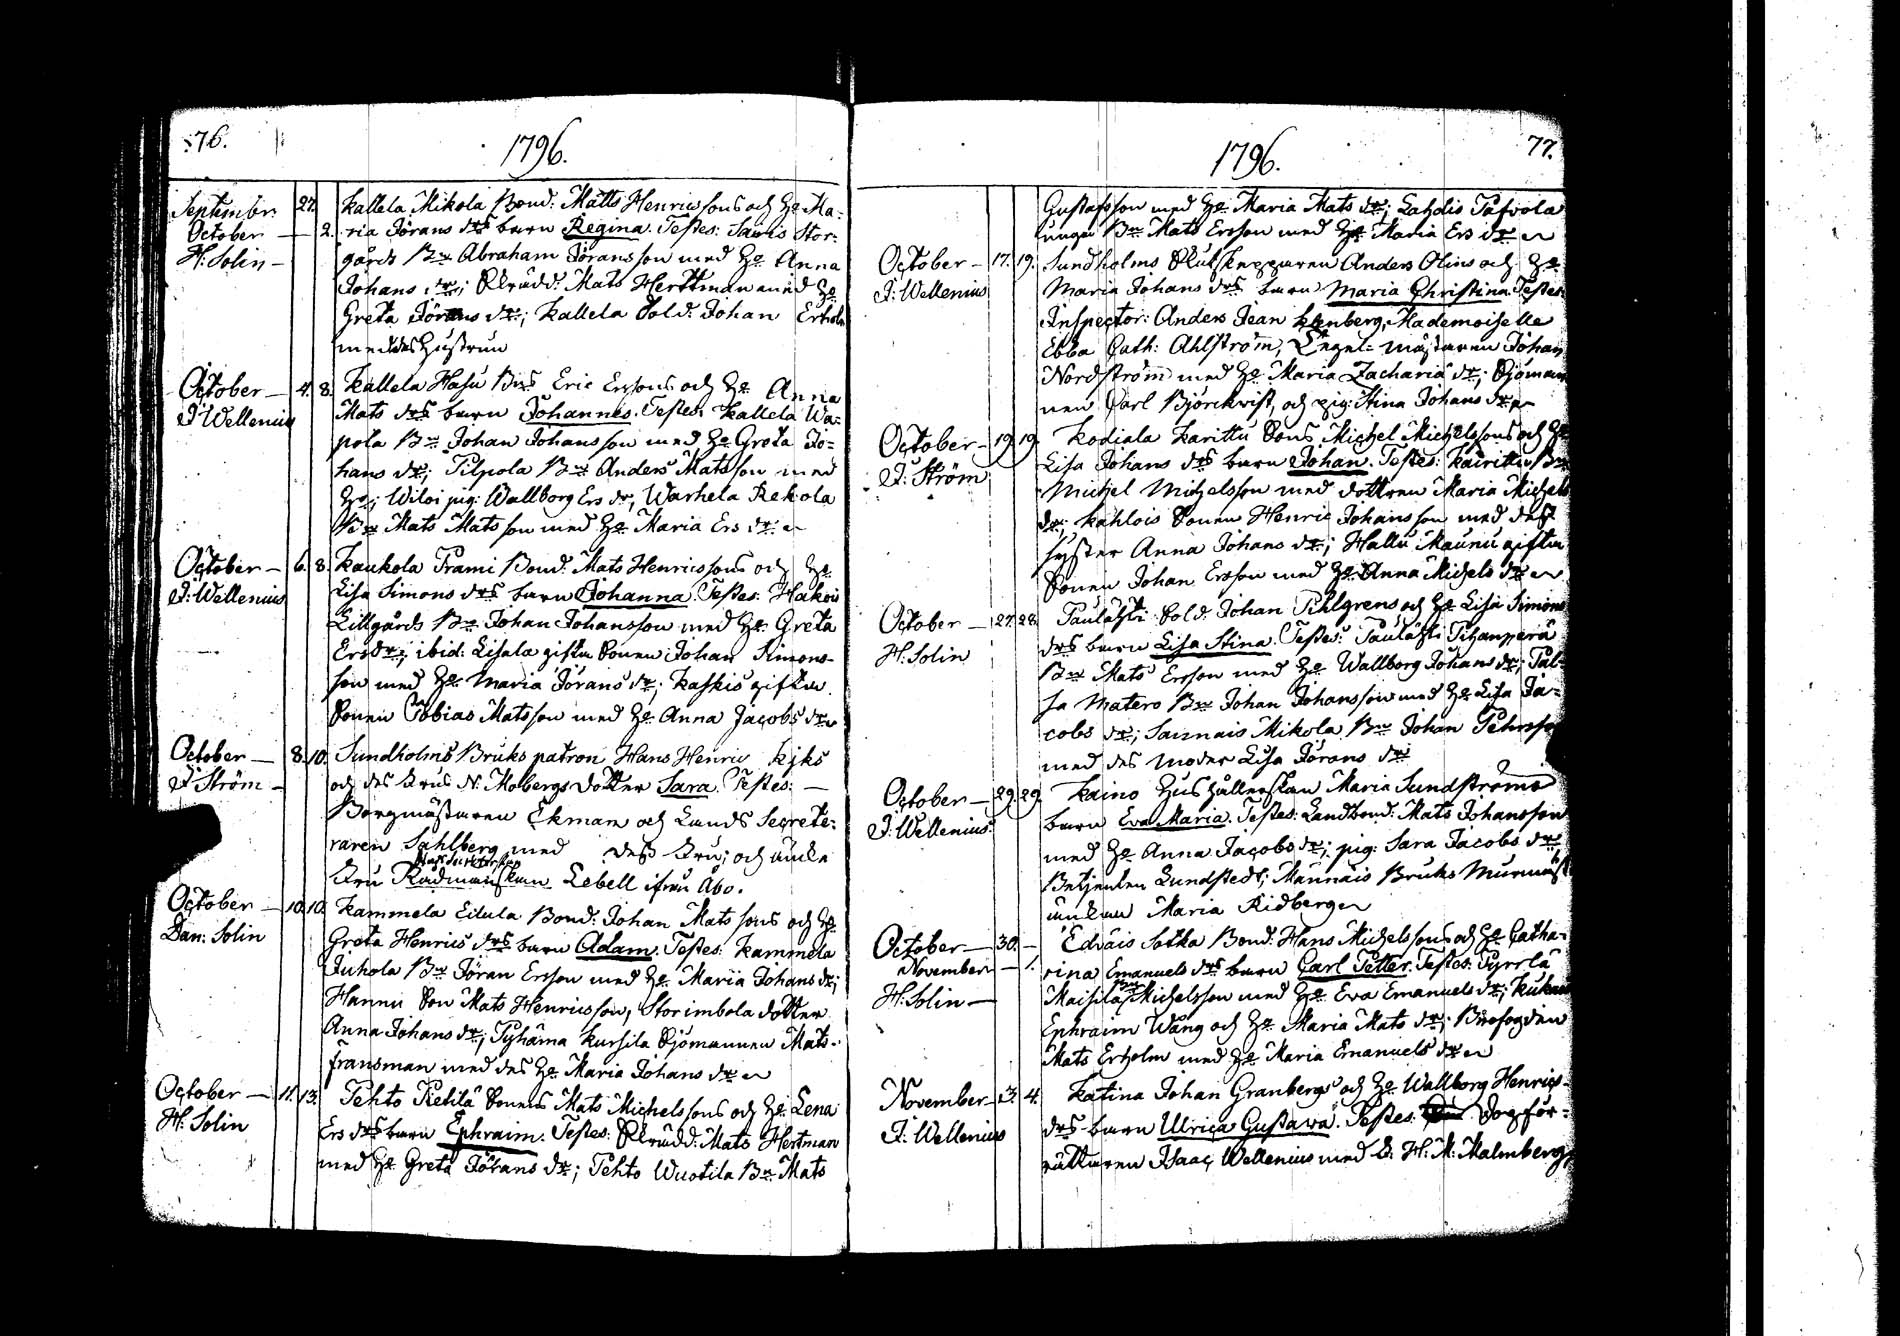 76.
1796.
Septembr: 27. Kallela Mikola Bond: Matts Henricssons och H: Ma-
October — 2. ria Jörans drs barn Regina. Testes: Sauis Stor-
H: Solin — gårds Bn Abraham Jöransson med H: Anna
Johans dr; Skrädd: Mats Herttman med H:
Greta Jörans dr; Kallela Sold: Johan Erholm
med des Hustru
October — 4. 8. Kallela Hasu Bns Eric Erssons och H: Anna
J: Wellenius Mats drs barn Johannes. Testes: Kallela Wa-
pola Bn Johan Johansson med H: Greta Jo-
hans dr; Pilpola Bn Anders Matsson med
H:; Wiloi pig: Wallborg Ers dr, Warhela Rekola
Bn Mats Matsson med H: Maria Ers dr:
October — 6. 8. Kaukola Prami Bond: Mats Henricssons och H:
J: Wellenius Lisa Simons drs barn Johanna. Testes: Hakois
Lillgårds Bn Johan Johansson med H: Greta
Ers dr; ibid: Eisala gifta Sonen Johan Simons-
son med H: Maria Jörans dr; Kaskis gifta
Sonen Tobias Matsson med H: Anna Jacobs dr
October — 8. 10. Sundholms Bruks patron Hans Henric Kjks
J: Ström — och des Frus N: Mobergs dotter Sara. Testes: —
Borgmästaren Ekman och Lands Secrete-
raren Sahlberg med dess Fru; och änke
Fru Rådmanskan Lebell ifrån Åbo.
October — 10. 10. Kammela Eilula Bond: Johan Matssons och H:
Dan: Solin Greta Henrics drs barn Adam. Testes: Kammela
Juhola Bn Jöran Ersson med H: Maria Johans dr;
Hannu Son Mats Henricsson, Storimbola dotter
Anna Johans dr; Pyhäma Kursila Sjömannen Mats
fransman med des H: Maria Johans dr
October — 11. 13. Tehto Pietilä Sonens Mats Michelssons och H: Lena
H: Solin Ers drs barn Ephraim. Testes: Skrädd: Mats Hertman
med H: Greta Jörans dr; Tehto Wuotila Bn Mats
1796.
77.
Gustafsson med H: Maria Mats dr; Lahdis Tafvola
unga Bn Mats Ersson med H: Maria Ers dr
October — 17. 19. Sundholms Slutskepparen Anders Olins och H:
J: Wellenius Maria Johans drs barn Maria Christina Testes:
Inspector: Anders Jean Mademoiselle
Ebba Cath: Ahlström, Segel-mästaren Johan
Nordström med H: Maria Zacharia dr; Sjöman
nen Carl Björckvist, och pig: Stina Johans dr
October — 19. 19. Kodiala Karittu Sons Michel Michelssons och H:
J: Ström Lisa Johans drs barn Johan. Testes: Kairittu Bn
Michel Michelsson med dottren Maria Michels
dr; Kahlois Sonen Henric Johansson med dess
syster Anna Johans dr; Hallu Maunu gifta
Sonen Johan Ersson med H: Anna Michels dr
October — 27. 28. Taulähti Sold: Johan Pihlgrens och H: Lisa Simons
H: Solin drs barn Lisa Stina. Testes: Taulähti Pihanperä
Bn Mats Ersson med H: Wallborg Johans dr; Pal-
sa Matero Bn Johan Johansson med H: Lisa Ja-
cobs dr; Sannais Mikola Bn Johan Pehrsson
med des moder Lisa Jörans dr
October — 29. 29. Kaino Hushållerskan Maria Sundströms
J: Wellenius barn Eva Maria. Testes: Landbond: Mats Johansson
med H: Anna Jacobs dr; pig: Sara Jacobs dr
Betjenten Lundstedt; Mannäis Bruks Murmäst
änkan Maria Ridberg
October — 30. — Edväis Sotka Bond: Hans Michelssons och H: Catha-
November — 1. rina Emanuels drs barn Carl Petter. Testes: Pyrrlä
H: Solin — Maisila Bn Michelsson med H: Eva Emanuels dr;
Ephraim Wång och H: Maria Mats dr; Befogden
Mats Erholm med H: Maria Emanuels dr
November — 3. 4. Katina Johan Granbergs och H: Wallborg Henrics-
J: Wellenius drs barn Ulrica Gustava. Testes: Sogför-
rättaren Isaac Wellenius med D: H: M: Malmberg